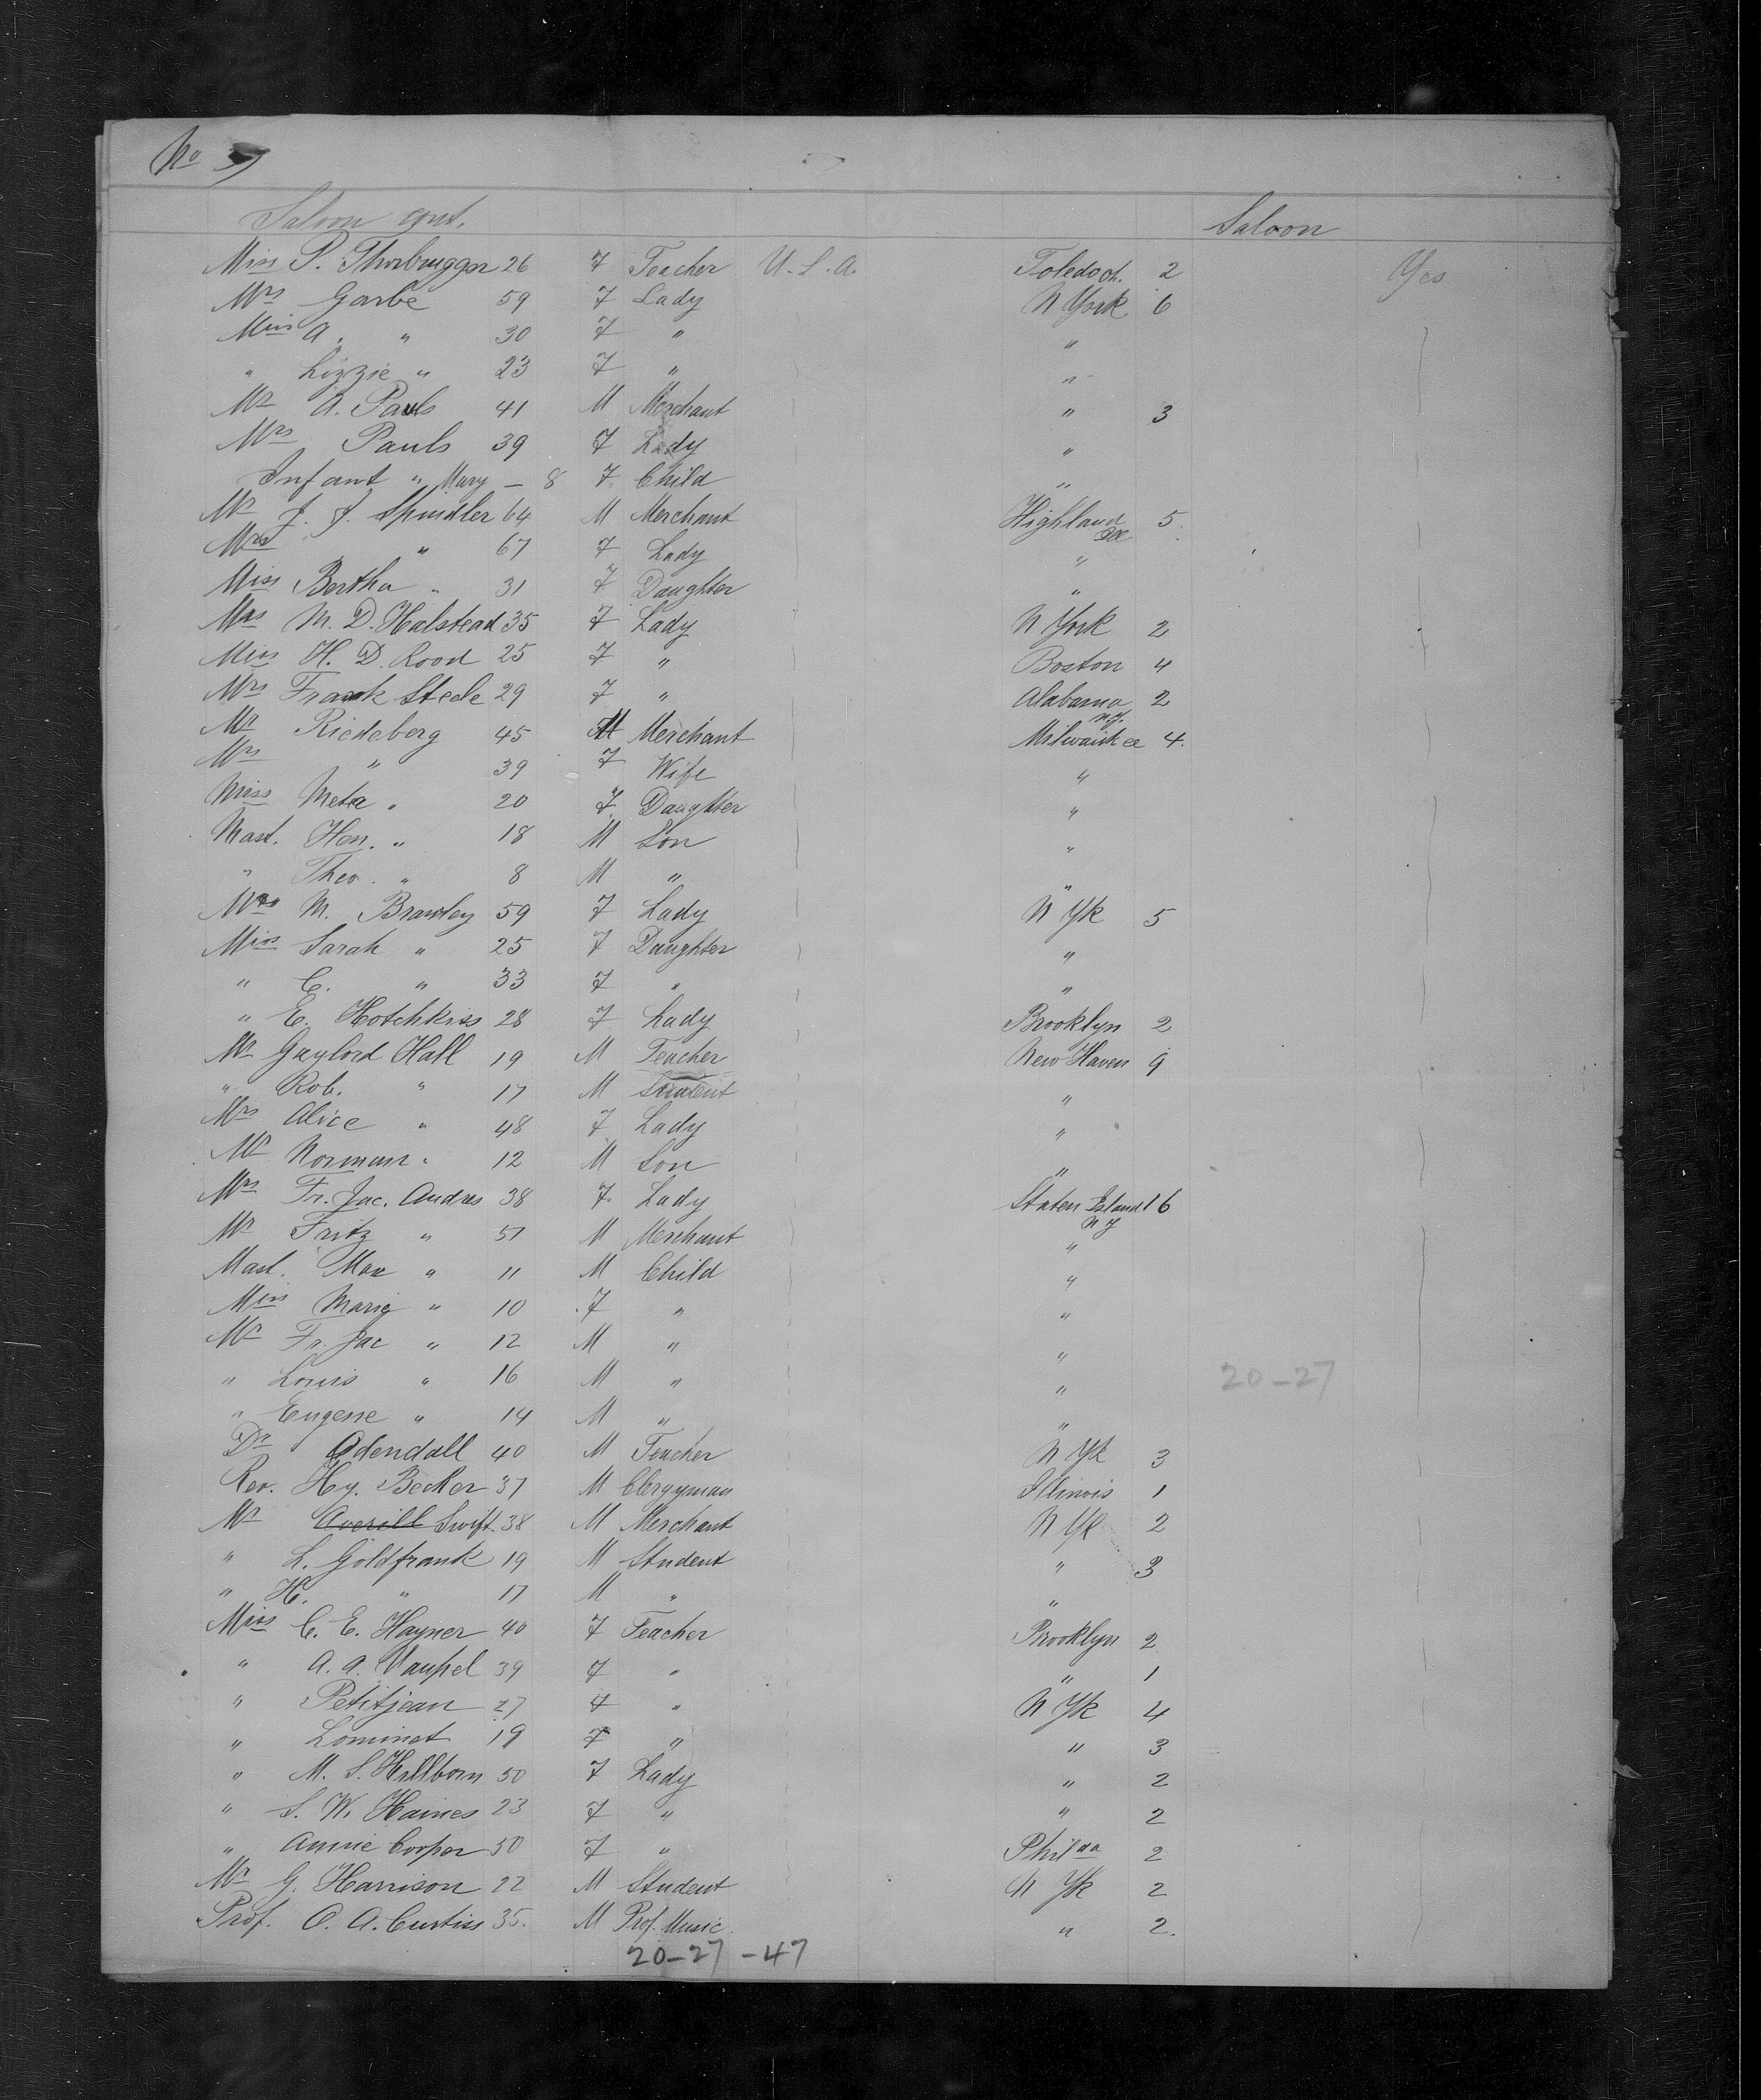 No
Saloon cont. Saloon
Miss P. Thorbruggen 26 F Teacher U.S.A. Toledo Oh. 2 Yes
Mrs Garbe 59 F Lady N York 6
Miss A. " 30 F " "
" Lizzie " 23 F " "
Mr A. Pauls 41 M Merchant " 3
Mrs Pauls 39 F Lady "
Infant " Mary – 8 F Child "
Mr J. J. Spindler 64 M Merchant Highland Ill 5
Mrs " 67 F Lady "
Miss Bertha " 31 F Daughter "
Mrs M. D. Halstead 35 F Lady N York 2
Miss H. D. Rood 25 F " Boston 4
Mrs Frank Steele 29 F " Alabama N.Y. 2
Mr Riedeberg 45 M Merchant Milwaukee 4
Mrs " 39 F Wife "
Miss Meta " 20 F Daughter "
Mast. Hen. " 18 M Son "
" Theo. " 8 M " "
Mrs M. Brawley 59 F Lady N Yk 5
Miss Sarah " 25 F Daughter "
" C. " 33 F " "
" E. Hotchkiss 28 F Lady Brooklyn 2
Mr Gaylord Hall 19 M Teacher New Haven 9
" Rob. " 17 M Student "
Mrs Alice " 48 F Lady "
Mr Norman " 12 M Son "
Mrs Fr. Jac. Andres 38 F Lady Staten Island N Y 16
Mr Fritz " 51 M Merchant "
Mast. Max " 11 M Child "
Miss Marie " 10 F " "
Mr Fr. Jac " 12 M " "
" Louis " 16 M " " 20-27
" Eugene " 14 M " "
Dr Odendall 40 M Teacher N Yk 3
Rev. Hy. Becker 37 M Clergyman Illinois 1
Mr Averill Swift 38 M Merchant N Yk 2
" L. Goldfrank 19 M Student " 3
" H. " 17 M " "
Miss C. E. Hayner 40 F Teacher Brooklyn 2
" A. A. Vaupel 39 F " " 1
" Petitjean 27 F " N Yk 4
" Lominot 19 F " " 3
" M. S. Hillborn 50 F Lady " 2
" S. W. Haines 23 F " " 2
" Annie Cooper 30 F " Phil da 2
Mr G. Harrison 22 M Student N Yk 2
Prof. O. A. Curtiss 35. M Prof. Music " 2.
20-27-47